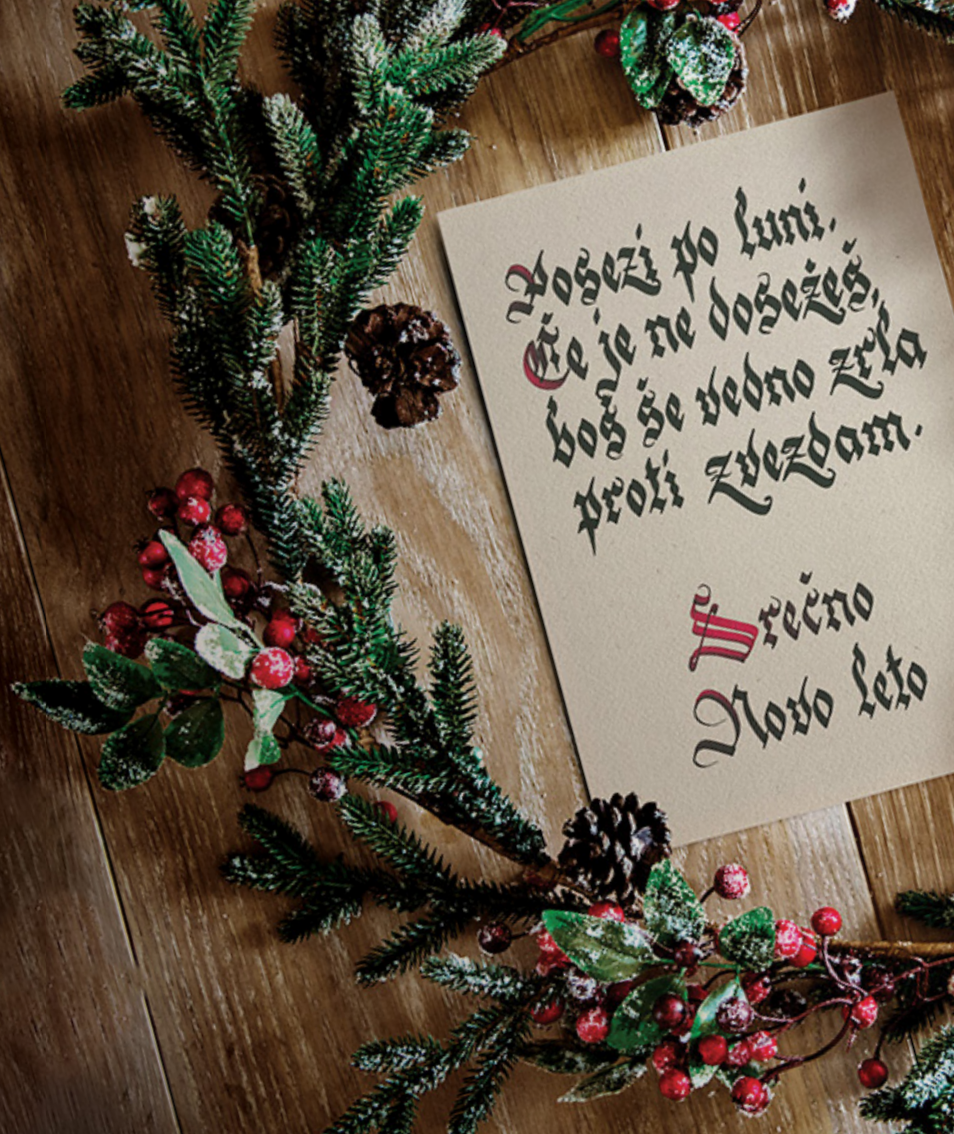 Posezi po luni.
Če je ne dosežeš,
boš še vedno zrla
proti zvezdam.
Srečno
Novo leto